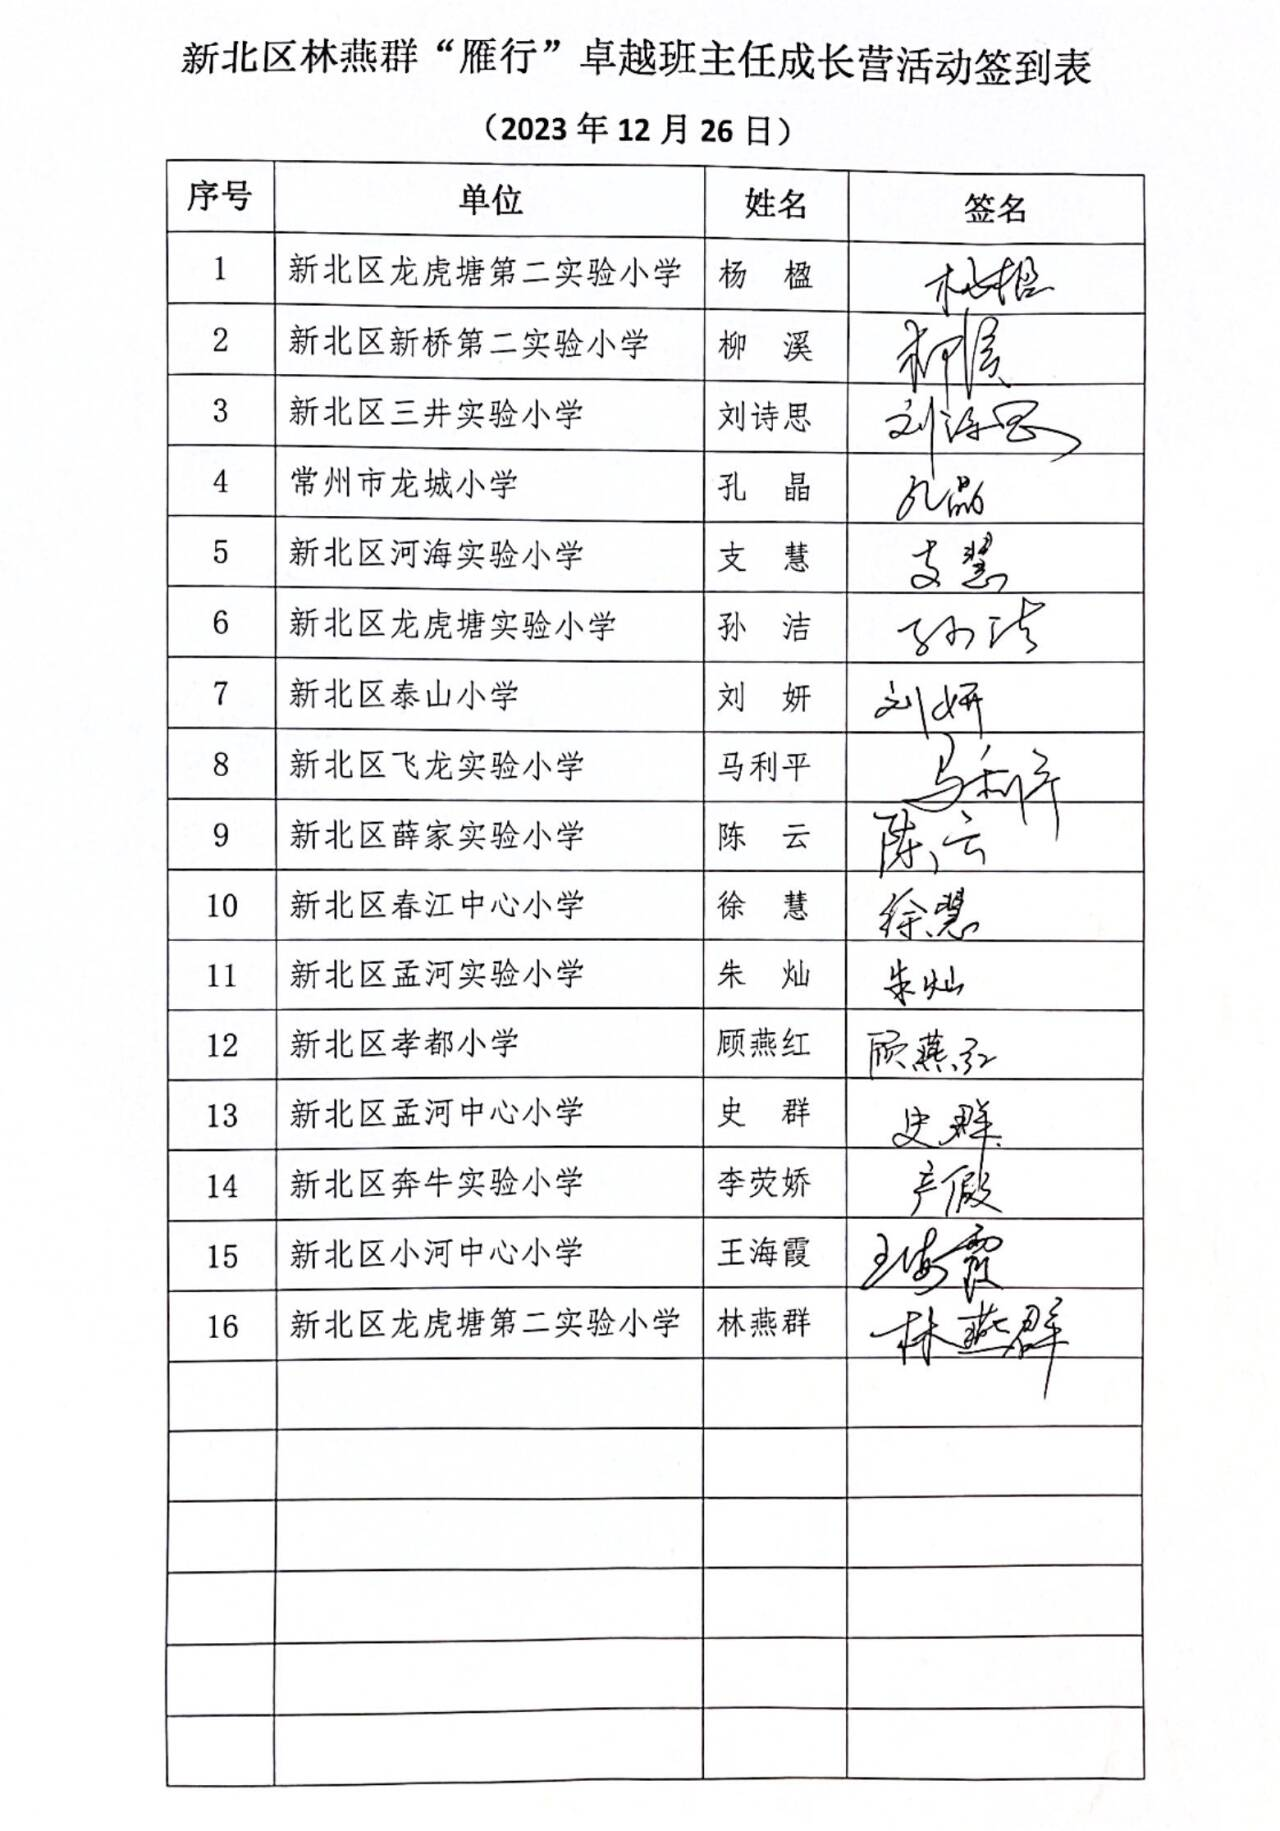 新北区林燕群“雁行”卓越班主任成长营活动签到表
（2023 年 12 月 26 日）
序号 单位 姓名 签名
1 新北区龙虎塘第二实验小学 杨 楹 杨楹
2 新北区新桥第二实验小学 柳 溪 柳溪
3 新北区三井实验小学 刘诗思 刘诗思
4 常州市龙城小学 孔 晶 孔晶
5 新北区河海实验小学 支 慧 支慧
6 新北区龙虎塘实验小学 孙 洁 孙洁
7 新北区泰山小学 刘 妍 刘妍
8 新北区飞龙实验小学 马利平 马利平
9 新北区薛家实验小学 陈 云 陈云
10 新北区春江中心小学 徐 慧 徐慧
11 新北区孟河实验小学 朱 灿 朱灿
12 新北区孝都小学 顾燕红 顾燕红
13 新北区孟河中心小学 史 群 史群
14 新北区奔牛实验小学 李荧娇 产假
15 新北区小河中心小学 王海霞 王海霞
16 新北区龙虎塘第二实验小学 林燕群 林燕群